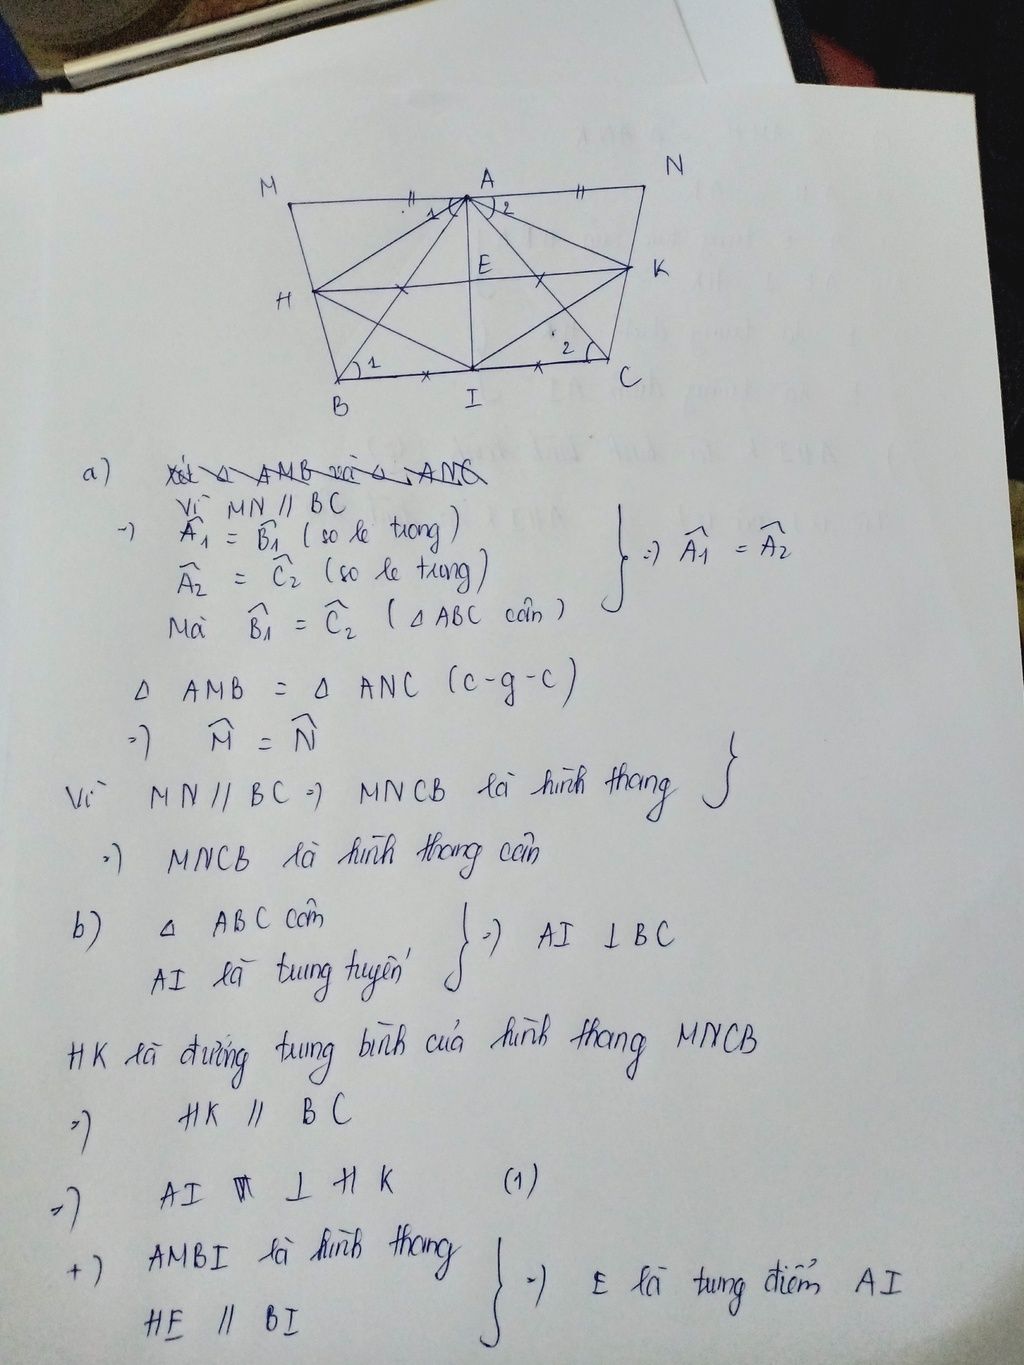 M A N
1 2
E
H K
1 2
B I C
a) Xét Δ AMB và Δ ANC
Vì MN // BC
=) Â1 = B̂1 (so le trong)
Â2 = Ĉ2 (so le trong)
=) Â1 = Â2
Mà B̂1 = Ĉ2 (Δ ABC cân)
Δ AMB = Δ ANC (c-g-c)
=) M̂ = N̂
Vì MN // BC =) MNCB là hình thang
=) MNCB là hình thang cân
b) Δ ABC cân
AI là trung tuyến
=) AI ⊥ BC
HK là đường trung bình của hình thang MNCB
=) HK // BC
=) AI ⊥ HK (1)
+) AMBI là hình thang
HE // BI
=) E là trung điểm AI